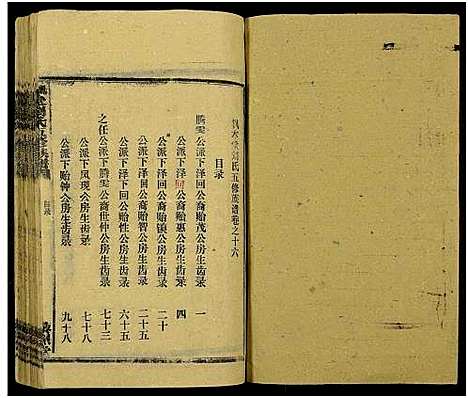 氏五修族譜卷之十六
目录
腾雯公派下泽回公裔贻茂公房生齿录 一
公派下泽回公裔贻惠公房生齿录 四
公派下泽回公裔贻镇公房生齿录 二十
公派下泽回公裔贻智公房生齿录 二十五
公派下泽下回公贻性公房生齿录 六十五
之任公派下腾雯公裔世仲公房生齿录 七十三
公派下风现公房生齿录 七十八
公派下贻钟公房生齿录 九十八
目录